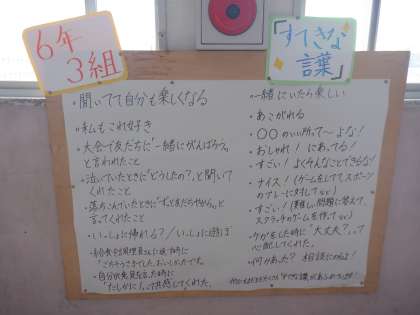 6年
3組
「すてきな
言葉」
・聞いてて自分も楽しくなる
・私もこれ好き
・大会で友だちに「一緒にがんばろう。」
と言われたこと
・泣いていたときに「どうしたの?」と聞いて
くれたこと
・落ちこんでいたときに
言ってくれたこと
・いっしょに帰れる?/いっしょに遊ぼ
「ごちそうさまでした。おいしかったです。」
・自分が発言した時に
「たしかに!」って共感してくれた。
・一緒にいたら楽しい
・あこがれる
・〇〇のいい所って〜よな!
・おしゃれ! にあってる!
・すごい! よくそんなことできるな!
・ナイス! (ゲームをしてスポーツ
のプレーに対してなど)
・すごい! (難しい問題に答えて、
スクラッチのゲームを作ってなど)
・ケガをした時に「大丈夫?」って
心配してくれた。
・何かあった? 相談にのるよ!